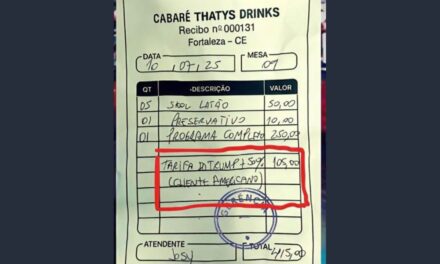 CABARÉ THATYS DRINKS
Recibo nº 000131
Fortaleza - CE
DATA MESA
10 , 07 , 25 09
QT DESCRIÇÃO VALOR
05 SKOL LATÃO 50,00
01 PRESERVATIVO 10,00
01 PROGRAMA COMPLETO 250,00
TARIFA DI TRUMP + 50% 105,00
(CLIENTE AMERICANO)
GERÊNCIA
ATENDENTE TOTAL
Josy 415,00